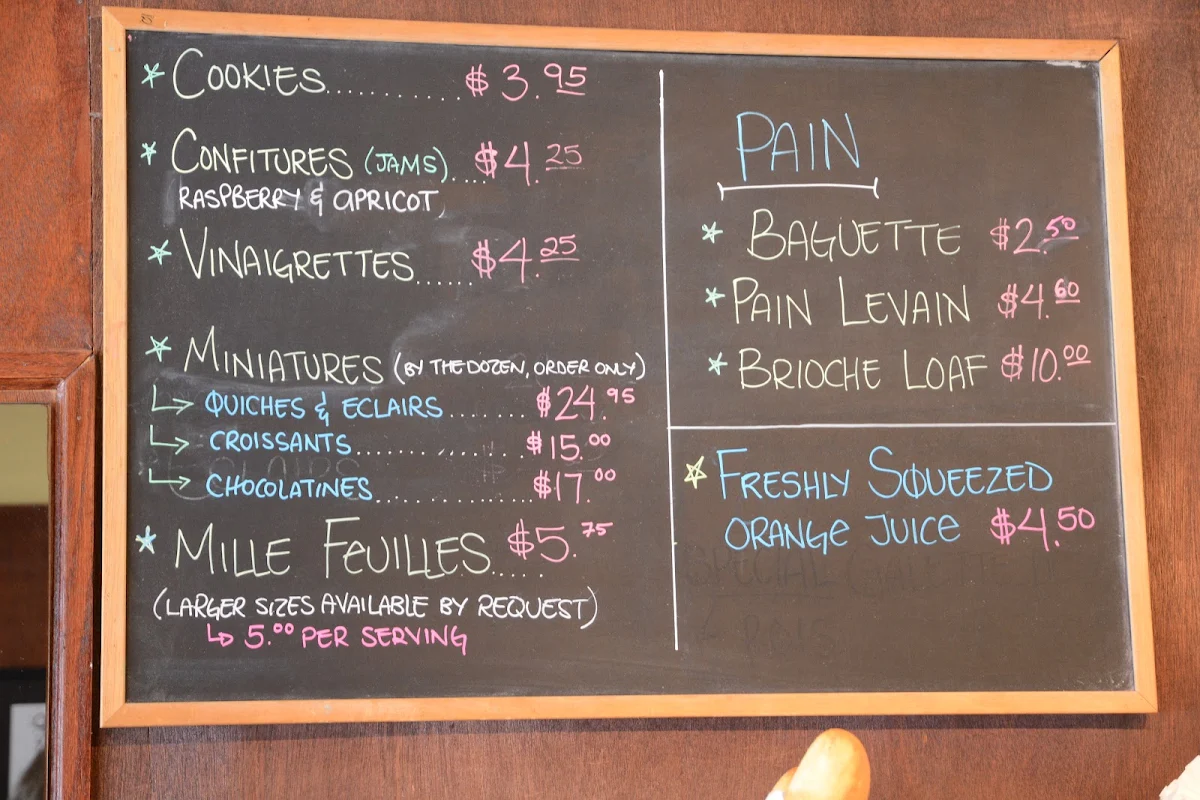 COOKIES............ $3.95
CONFITURES (JAMS).... $4.25
RASPBERRY & APRICOT,
VINAIGRETTES...... $4.25
MINIATURES (BY THE DOZEN, ORDER ONLY)
QUICHES & ECLAIRS........ $24.95
CROISSANTS................ $15.00
CHOCOLATINES............... $17.00
MILLE FEUILLES..... $5.75
(LARGER SIZES AVAILABLE BY REQUEST)
5.00 PER SERVING
PAIN
BAGUETTE $2.50
PAIN LEVAIN $4.60
BRIOCHE LOAF $10.00
FRESHLY SQUEEZED
ORANGE JUICE $4.50
SPECIAL